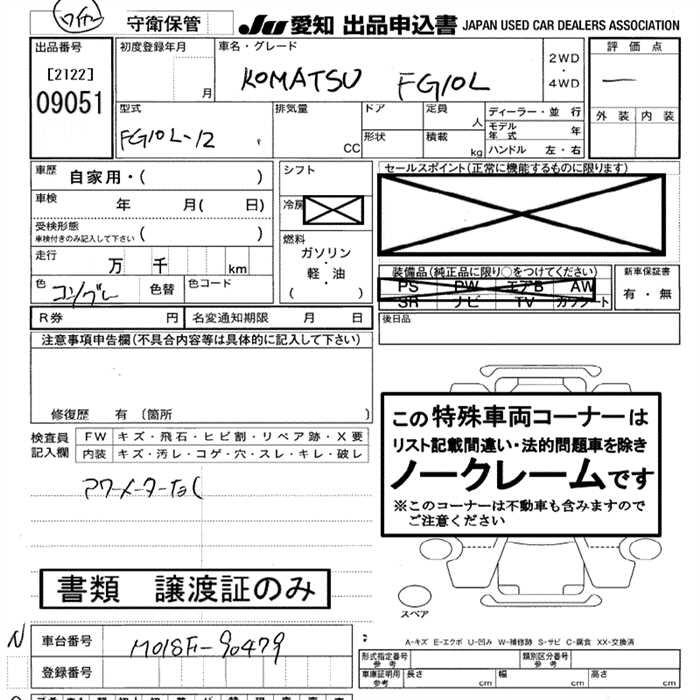 守衛保管
JU 愛知 出品申込書 JAPAN USED CAR DEALERS ASSOCIATION
出品番号
[2122]
09051
初度登録年月
月
車名・グレード
KOMATSU FG10L
2WD
・
4WD
評価点
—
外装 内装
型式
FG10L-12
排気量
CC
ドア
形状
定員
人
積載
kg
ディーラー・並行
モデル年式 年
ハンドル 左・右
車歴
自家用・( )
車検
年 月( 日)
受検形態
車検付きのみ記入して下さい
( )
走行
万 千 km
色
色替
色コード
シフト
冷房
燃料
ガソリン
・
軽・油
( )
セールスポイント(正常に機能するものに限ります)
装備品(純正品に限り○をつけてください)
PS PW エアB AW
SR ナビ TV カワシート
新車保証書
有・無
R券 円
名変通知期限 月 日
後日品
注意事項申告欄(不具合内容等は具体的に記入して下さい)
修復歴 有〔箇所 〕
検査員
記入欄
FW キズ・飛石・ヒビ割・リペア跡・X要
内装 キズ・汚レ・コゲ・穴・スレ・キレ・破レ
アワーメーター
この特殊車両コーナーは
リスト記載間違い・法的問題車を除き
ノークレームです
※このコーナーは不動車も含みますので
ご注意ください
書類 譲渡証のみ
スペア
A-キズ E-エクボ U-凹み W-補修跡 S-サビ C-腐食 XX-交換済
N
車台番号
M018F-90479
登録番号
形式指定番号
参考
類別区分番号
参考
車庫証明用
参考
長さ cm
幅 cm
高さ cm